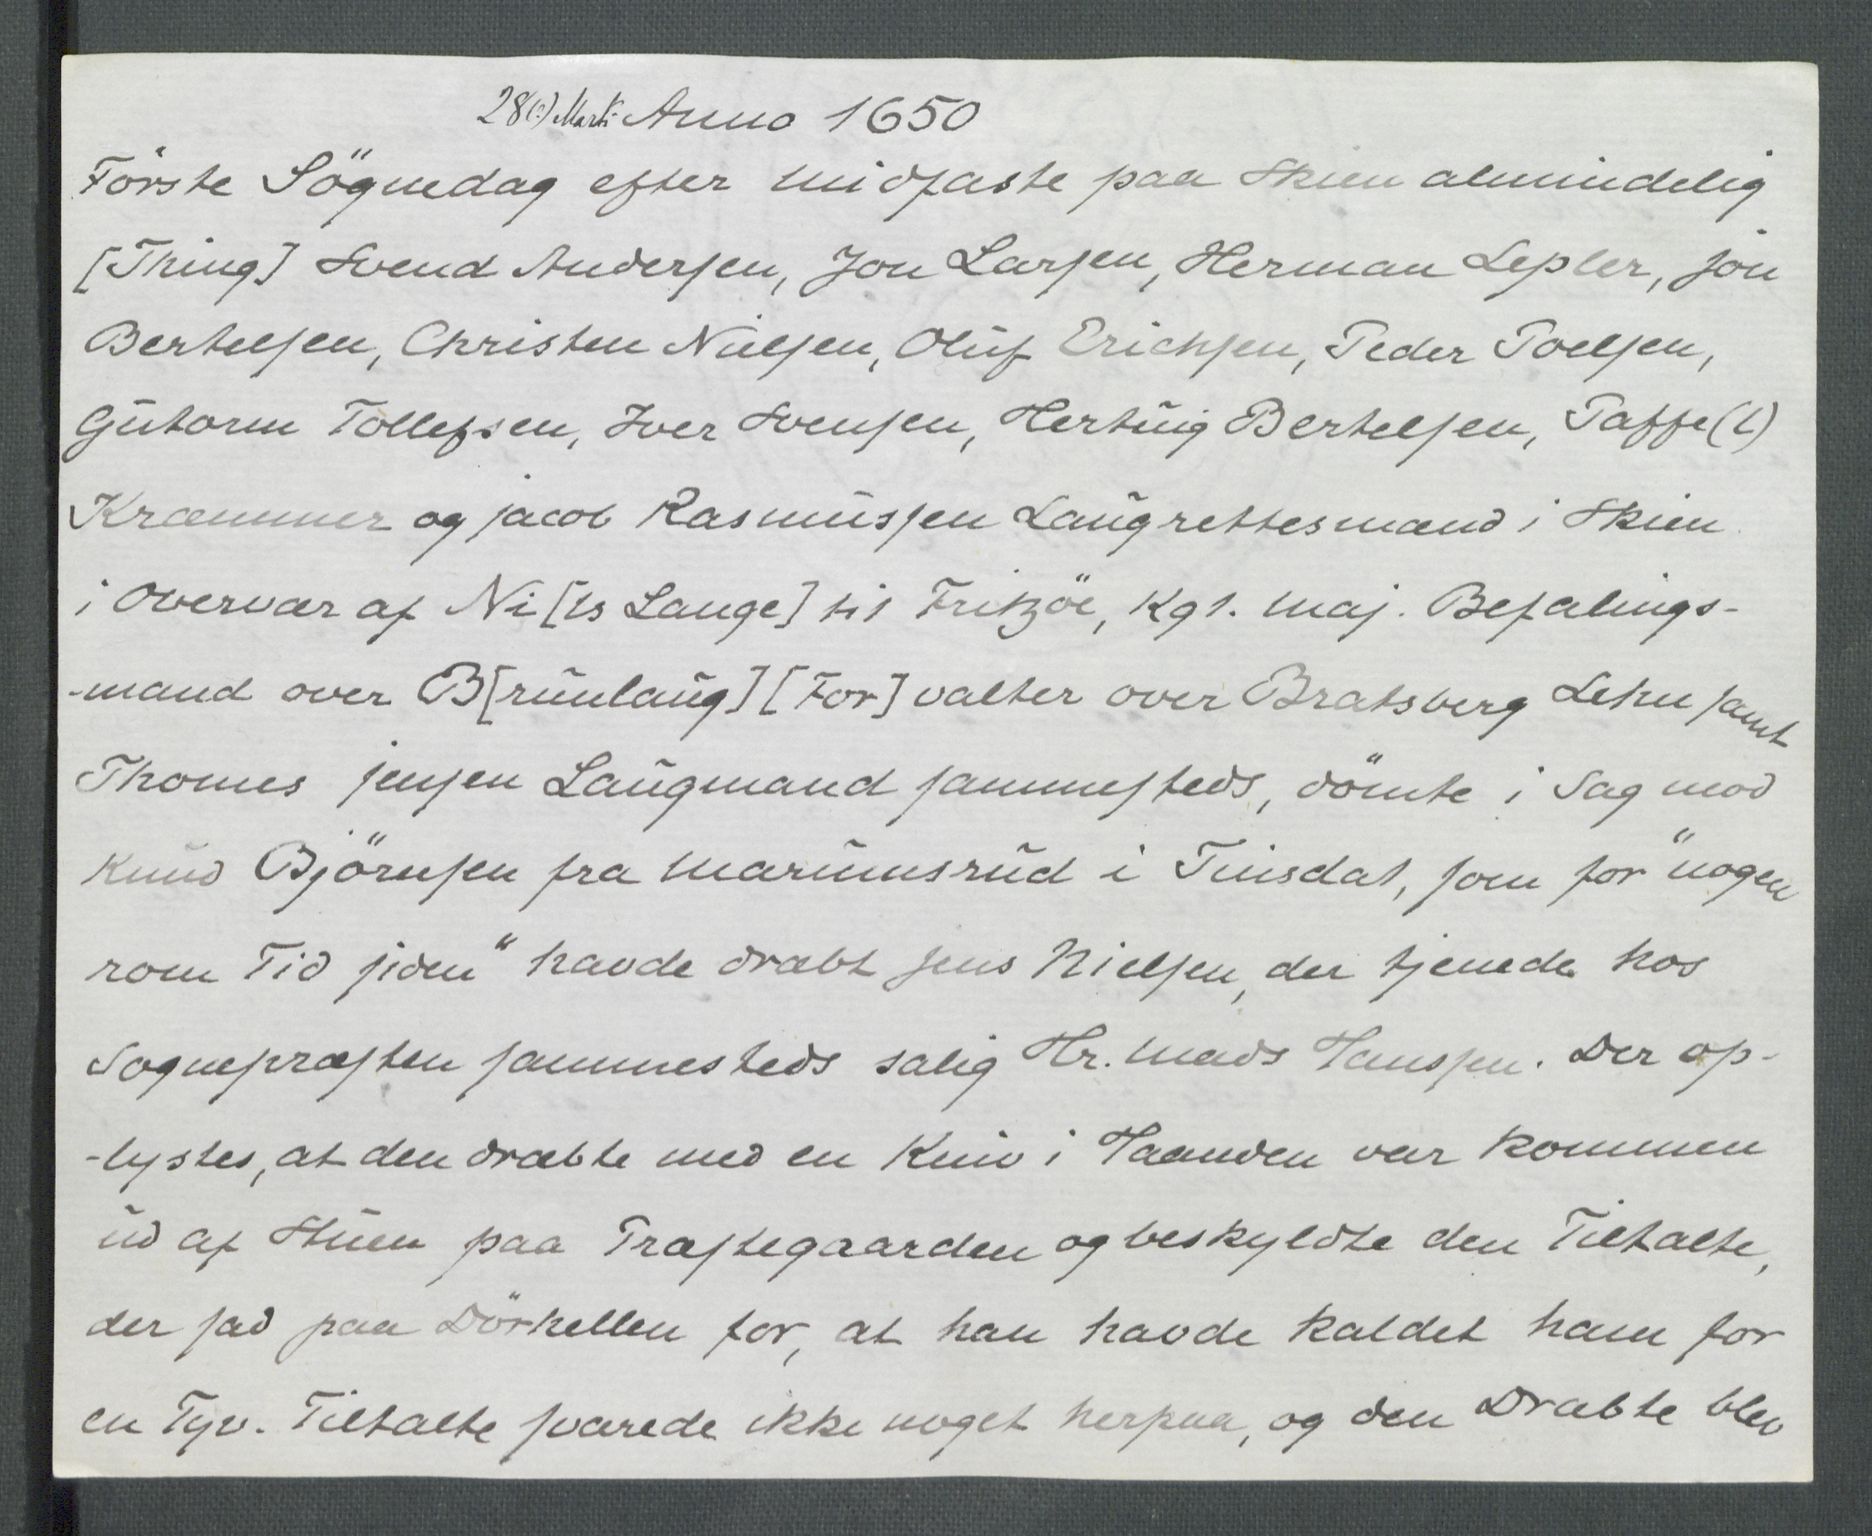 28(?) Marti Anno 1650
Förste Sögnedag efter Midfaste paa Skien almindelig
[Thing] Svend Andersen, Jon Larsen, Herman Lepler, Jon
Bertelsen, Christen Nielsen, Oluf Erichsen, Peder Poelsen,
Gutorm Tollefsen, Iver Svensen, Hertuig Bertelsen, Paffe(l)
Kræmmer og Jacob Rasmussen Laugrettesmænd i Skien
i Overvær af Ni[ls Lange] til Fritzöe, Kgl. Maj. Befalings-
-mand over B[runlaug] [For]valter over Bratsberg Lehn samt
Thomes Jensen Laugmand sammesteds, dömte i Sag mod
Knud Björnsen fra Marumsrud i Tinsdal, som for "nogen
rom Tid siden" havde dræbt Jens Nielsen, der tjenede hos
Sognepræsten sammesteds salig Hr. Mads Hanssen. Der op-
-lystes, at den dræbte med en Kniv i Haanden var kommen
ud af Stuen paa Præstegaarden og beskyldte den Tiltalte,
der sad paa Dörhellen for, at han havde kaldet ham for
en Tyv. Tiltalte svarede ikke noget herpaa, og den Dræbte blev